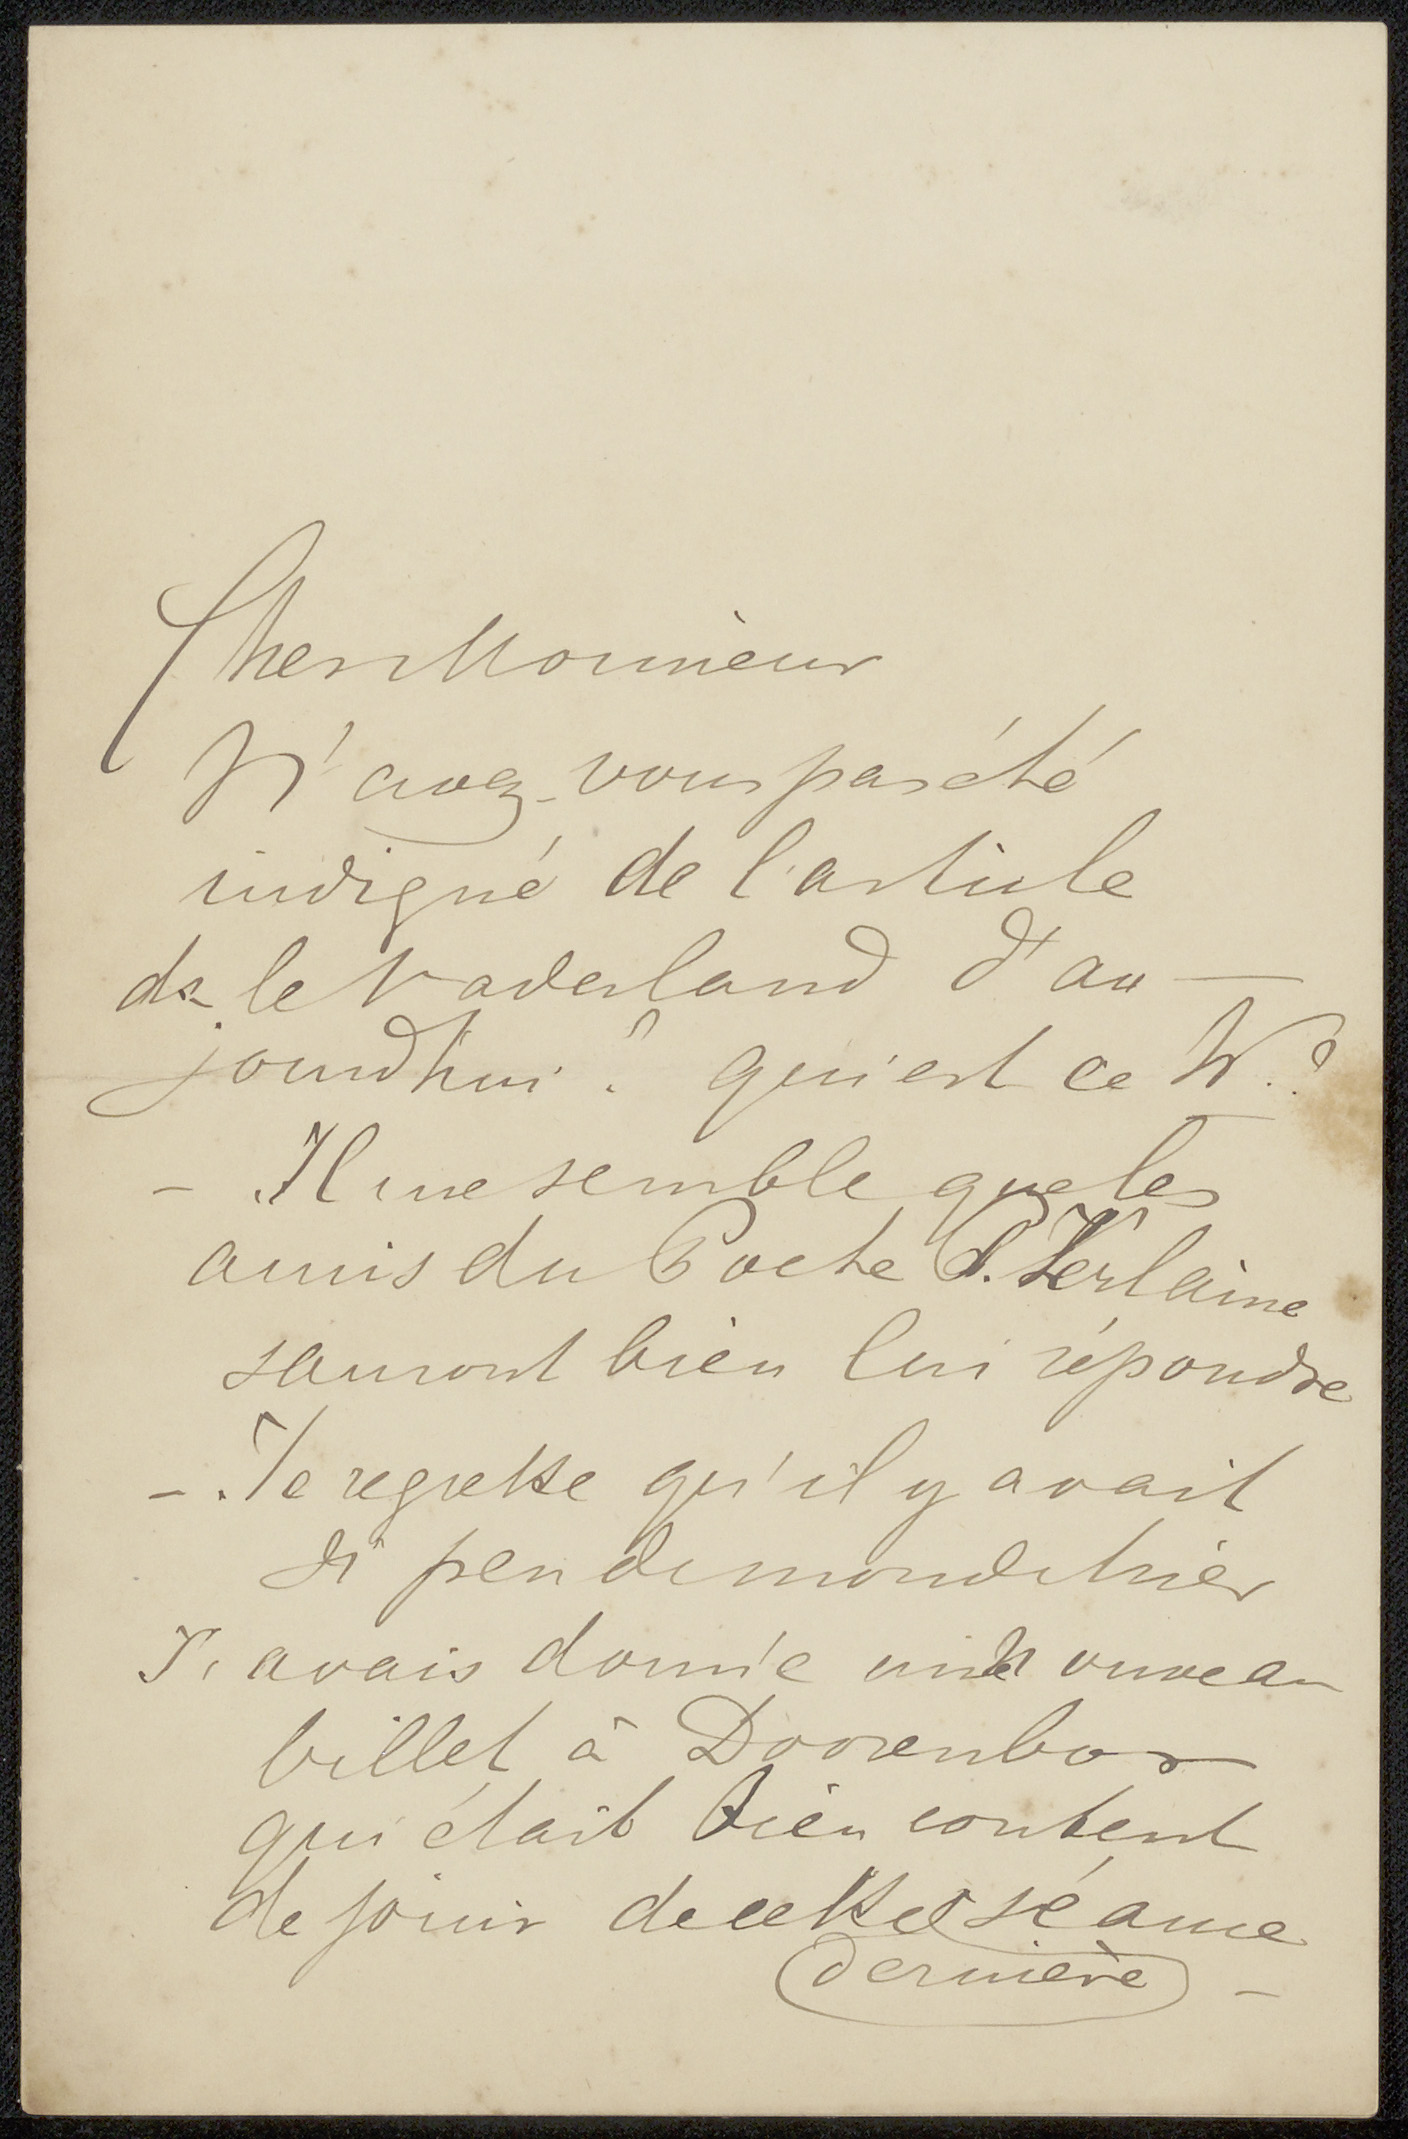 Cher Monsieur
N'avez-vous pas été
indigné de l'article
ds le Vaderland d'au-
jourd'hui? qui est ce W.?
- Il me semble que les
amis du Poete P. Verlaine
sauront bien lui répondre
- Je regrette qu'il y avait
si peu de monde hier
J'avais donné un nouveau
billet à Doorenbos
qui était bien content
de jouir de cette séance
dernière -